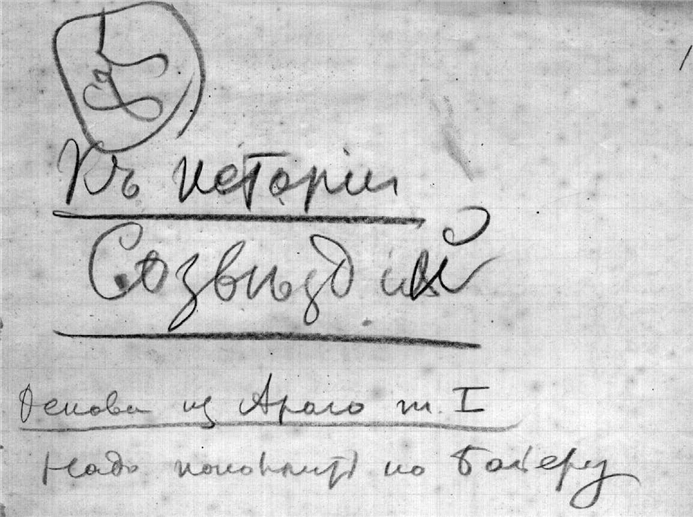 Къ исторіи
Созвѣздій
Основа из Араго т. I
Надо пополнить по Байеру